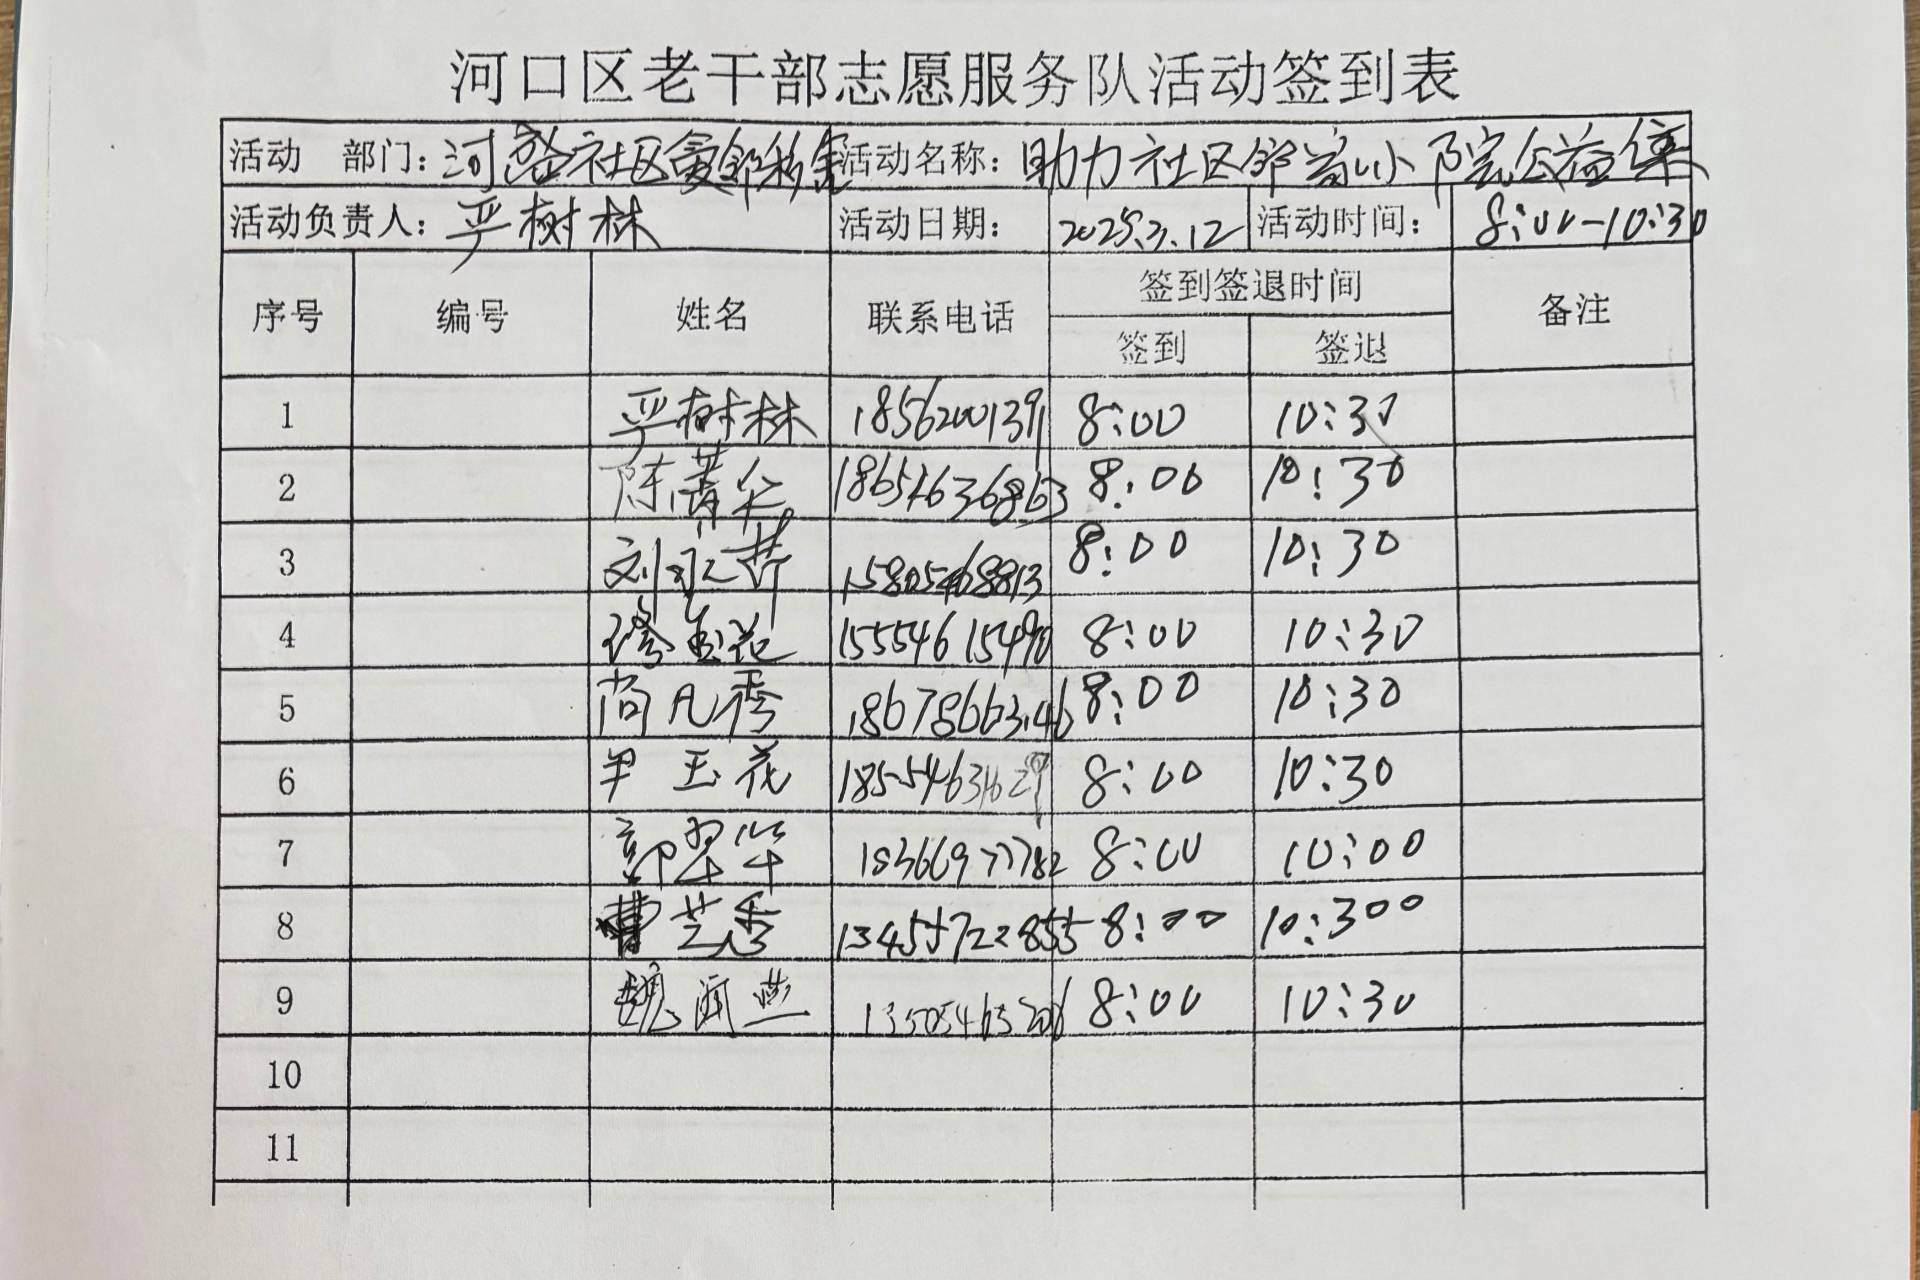 河口区老干部志愿服务队活动签到表
活动 部门: 河 社区 活动名称: 助力社区邻 小院公益集
活动负责人: 严树林 活动日期: 2025.3.12 活动时间: 8:00-10:30
序号 编号 姓名 联系电话 签到签退时间 备注
签到 签退
1 严树林 18562001391 8:00 10:30
2 陈菁 18654636863 8:00 10:30
3 刘 15805468813 8:00 10:30
4 玉花 15554615490 8:00 10:30
5 尚凡秀 18678663146 8:00 10:30
6 玉花 8:00 10:30
7 郭翠华 18366977782 8:00 10:00
8 曹芝秀 13455722855 8:00 10:300
9 魏 燕 8:00 10:30
10
11